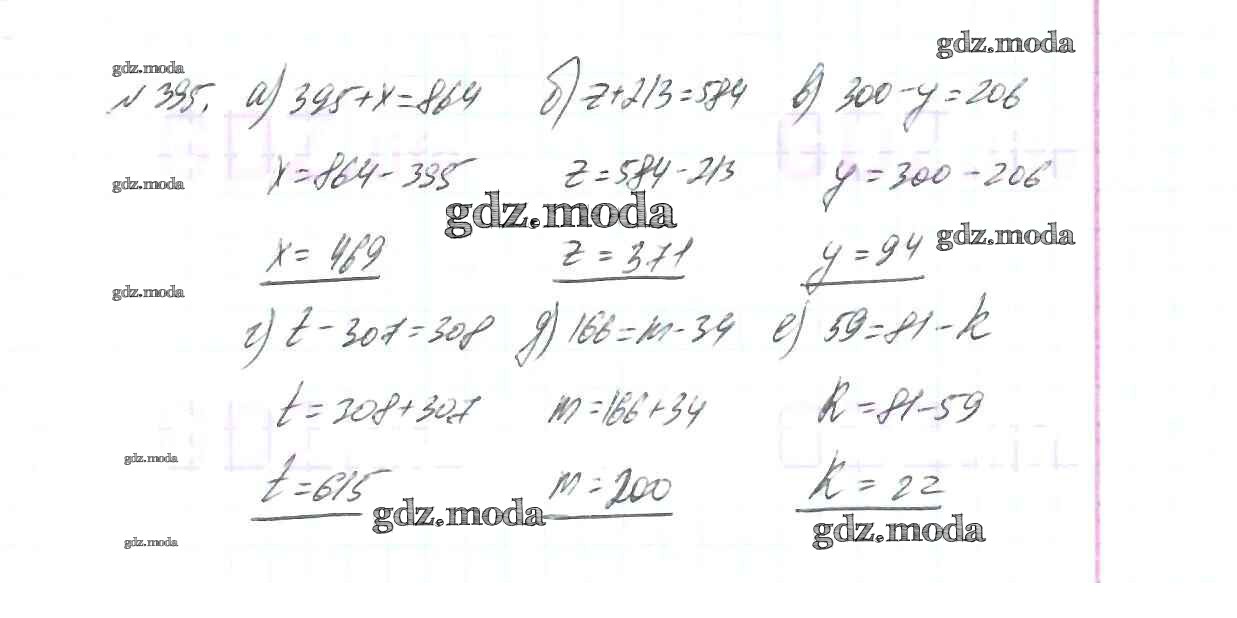 gdz.moda
gdz.moda
№ 395. а) 395+x=864 б) z+213=584 в) 300-y=206
x=864-395 z=584-213 y=300-206
gdz.moda
gdz.moda
gdz.moda
x=469 z=371 y=94
gdz.moda
г) t-307=308 д) 166=m-34 е) 59=81-k
t=308+307 m=166+34 k=81-59
gdz.moda
t=615 m=200 k=22
gdz.moda
gdz.moda
gdz.moda